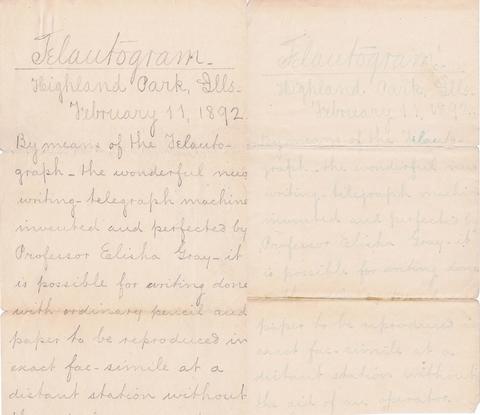 Telautogram.
Highland Park, Ills.
February 11, 1892.
By means of the Telauto-
graph - the wonderful new
writing-telegraph machine
invented and perfected by
Professor Elisha Gray - it
is possible for writing done
with ordinary pencil and
paper to be reproduced in
exact fac-simile at a
distant station without
Telautogram.
Highland Park, Ills.
February 11, 1892.
By means of the Telauto-
graph - the wonderful new
writing-telegraph machine
invented and perfected by
Professor Elisha Gray - it
is possible for writing done
paper to be reproduced in
exact fac-simile at a
distant station without
the aid of an operator.